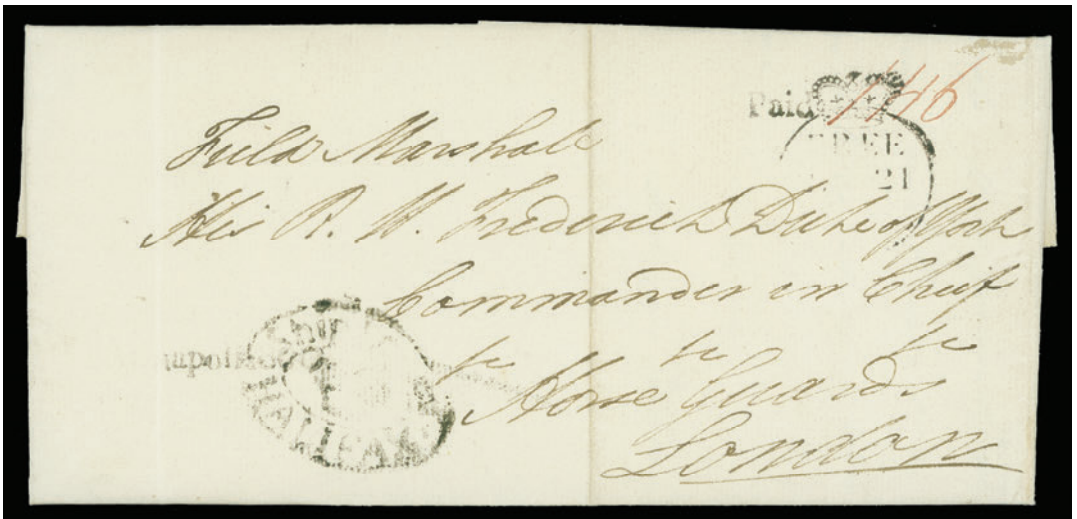 Paid 1/46
FREE
21
Field Marshall
His R. H. Frederick Duke of York
Commander in Chief
&c &c &c
Horse Guards
London
Ship
HALIFAX